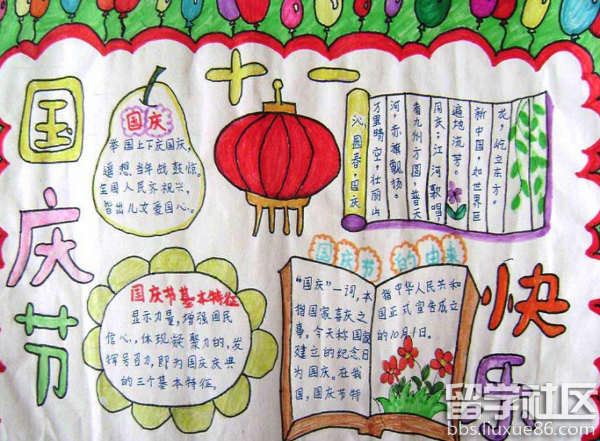 国庆节
十一
快乐
国庆
举国上下庆国庆,
遥想当年战鼓惊。
全国人民齐祝兴,
皆出儿女爱国心。
沁园春·国庆
万里晴空,壮丽山
河,赤旗飘扬。
看九州方圆,普天
同庆;江河歌唱,
遍地流芳。
新中国,如世界巨
龙,屹立东方。
国庆节基本特征
显示力量,增强国民
信心,体现凝聚力的,发
挥号召力,即为国庆庆典
的三个基本特征。
国庆节的由来
“国庆”一词,本
指国家喜庆之
事,今天称国家
建立的纪念日
为国庆。在我
国,国庆节特
指中华人民共和
国正式宣告成立
的10月1日。
留学社区
bbs.liuxue86.com